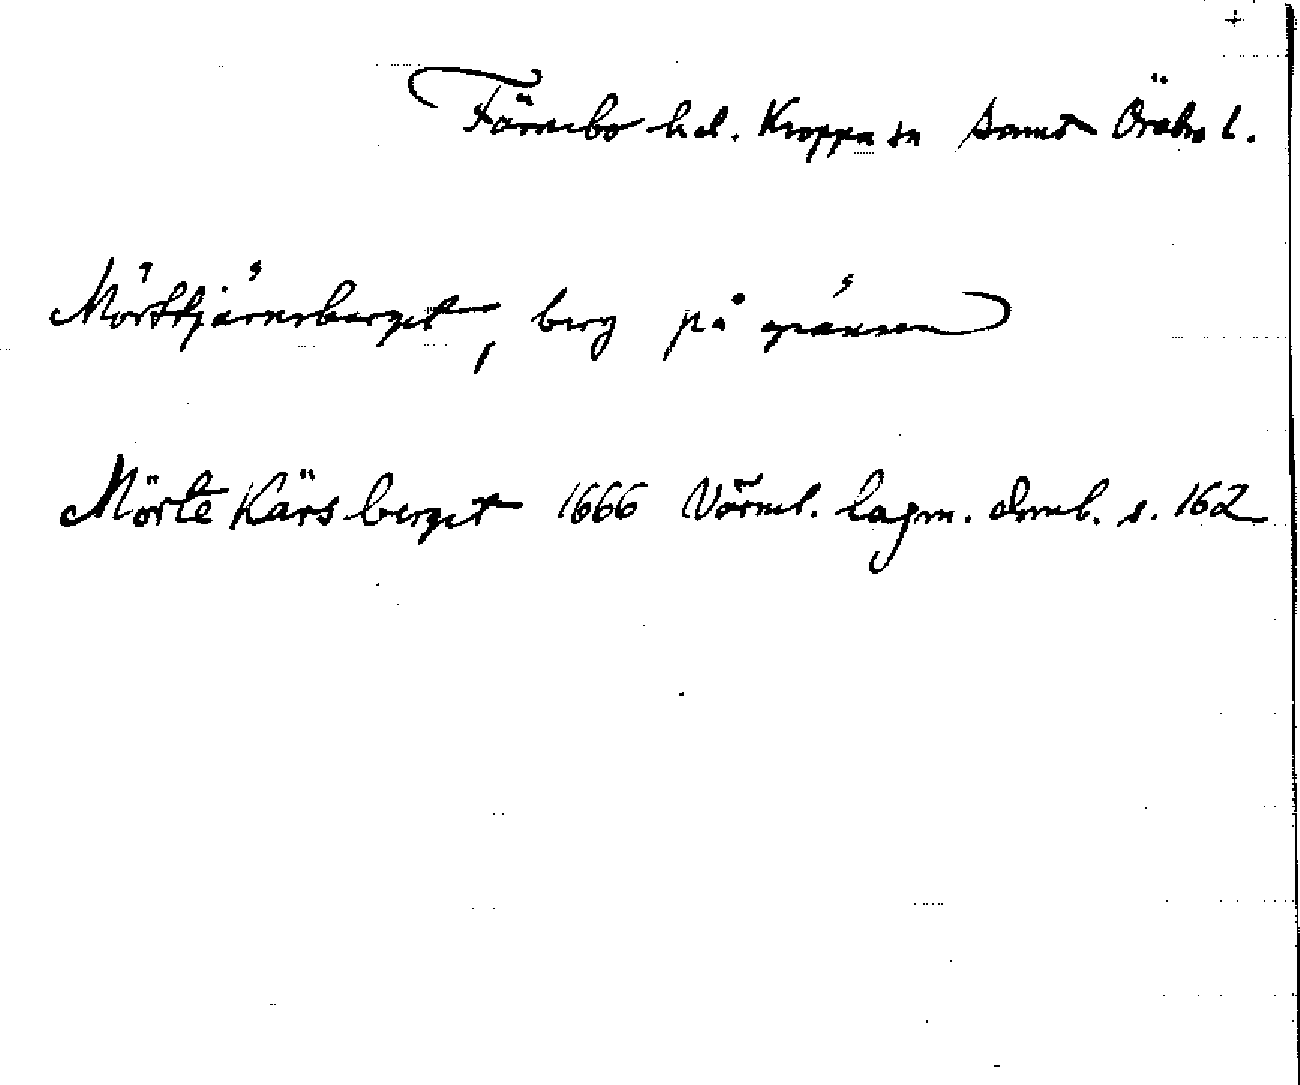 Färnebo hd. Kroppa sn samt Örebro l.
Mörttjärnsberget, berg på gränsen
Mörte Kärs berget 1666 Värml. lagm. domb. s. 162